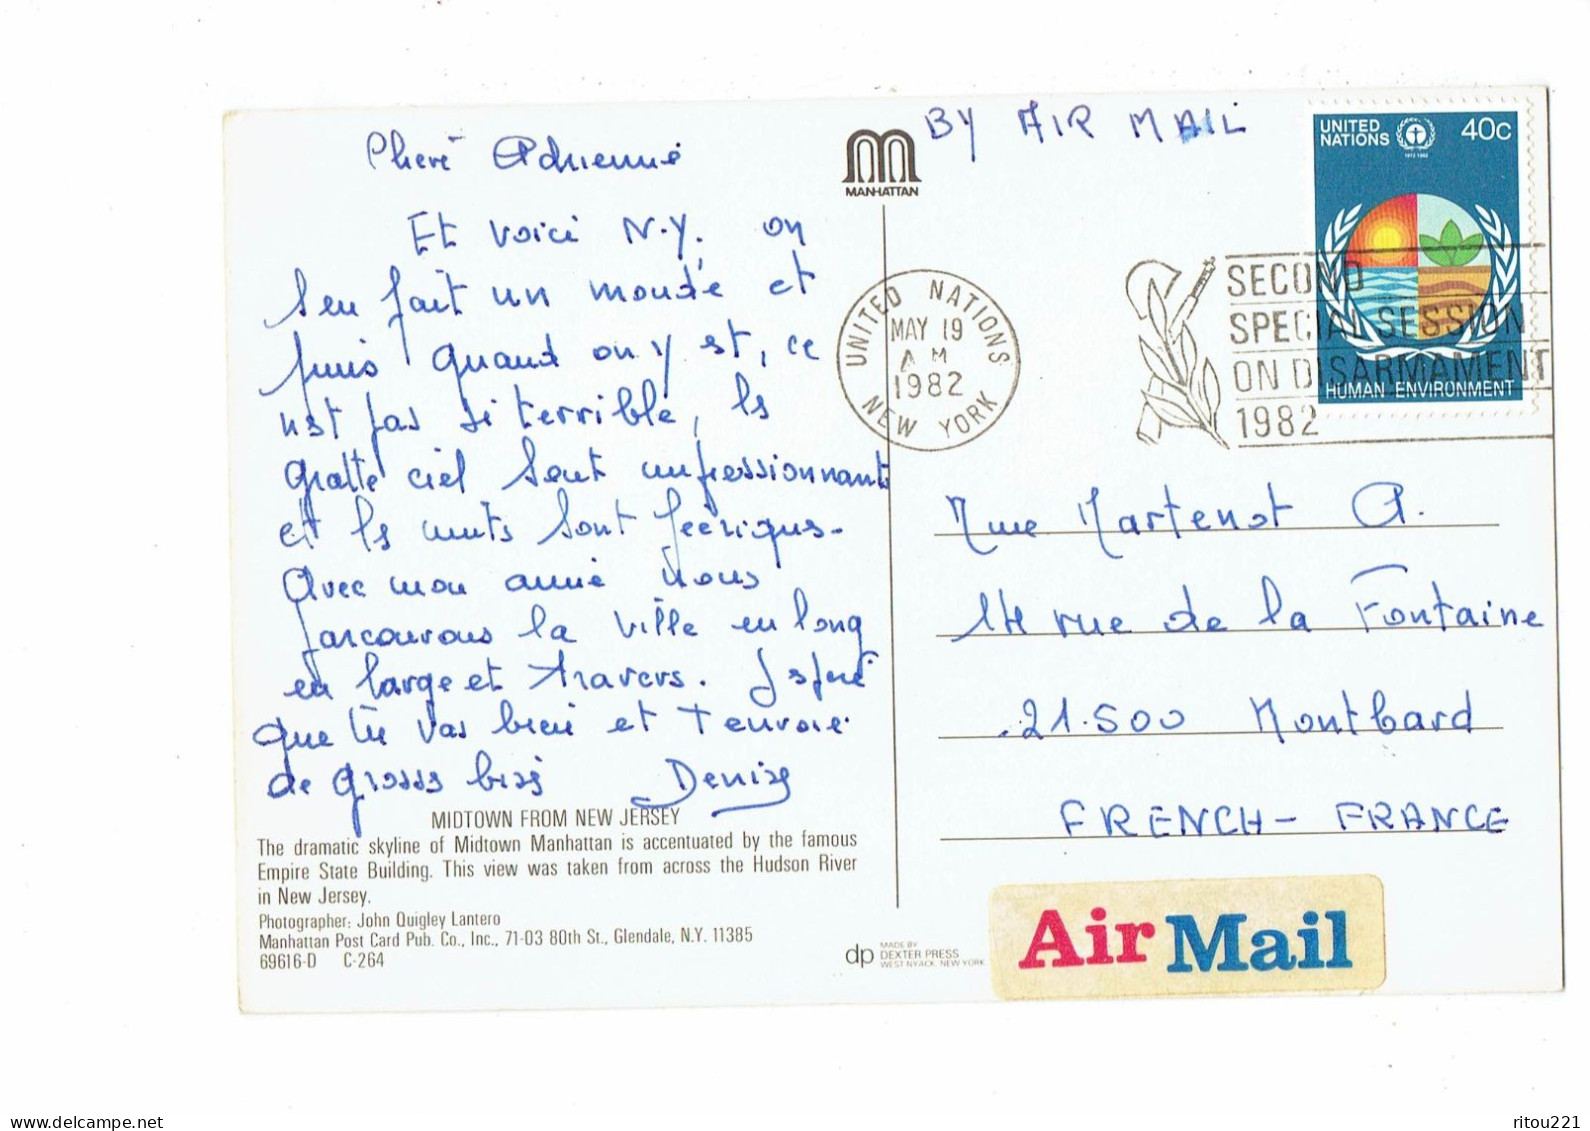 Chère Adrienne
Et voici N.Y. on
s'en fait un monde et
puis quand on y est, ce
n'est pas si terrible, les
gratte ciel sont impressionnants
et les nuits sont féériques.
Avec mon amie nous
parcourons la ville en long
en large et travers. J'espère
que tu vas bien et t'envoie
de grosses bises Denise
MIDTOWN FROM NEW JERSEY
The dramatic skyline of Midtown Manhattan is accentuated by the famous
Empire State Building. This view was taken from across the Hudson River
in New Jersey.
Photographer: John Quigley Lantero
Manhattan Post Card Pub. Co., Inc., 71-03 80th St., Glendale, N.Y. 11385
69616-D C-264
MANHATTAN
dp MADE BY
DEXTER PRESS
WEST NYACK, NEW YORK
BY AIR MAIL
UNITED NATIONS 40c
1972-1982
HUMAN ENVIRONMENT
UNITED NATIONS
MAY 19
AM
1982
NEW YORK
SECOND
SPECIAL SESSION
ON DISARMAMENT
1982
Mme Martenot A.
14 rue de la Fontaine
21.500 Montbard
FRENCH - FRANCE
Air Mail
delcampe.net
ritou221